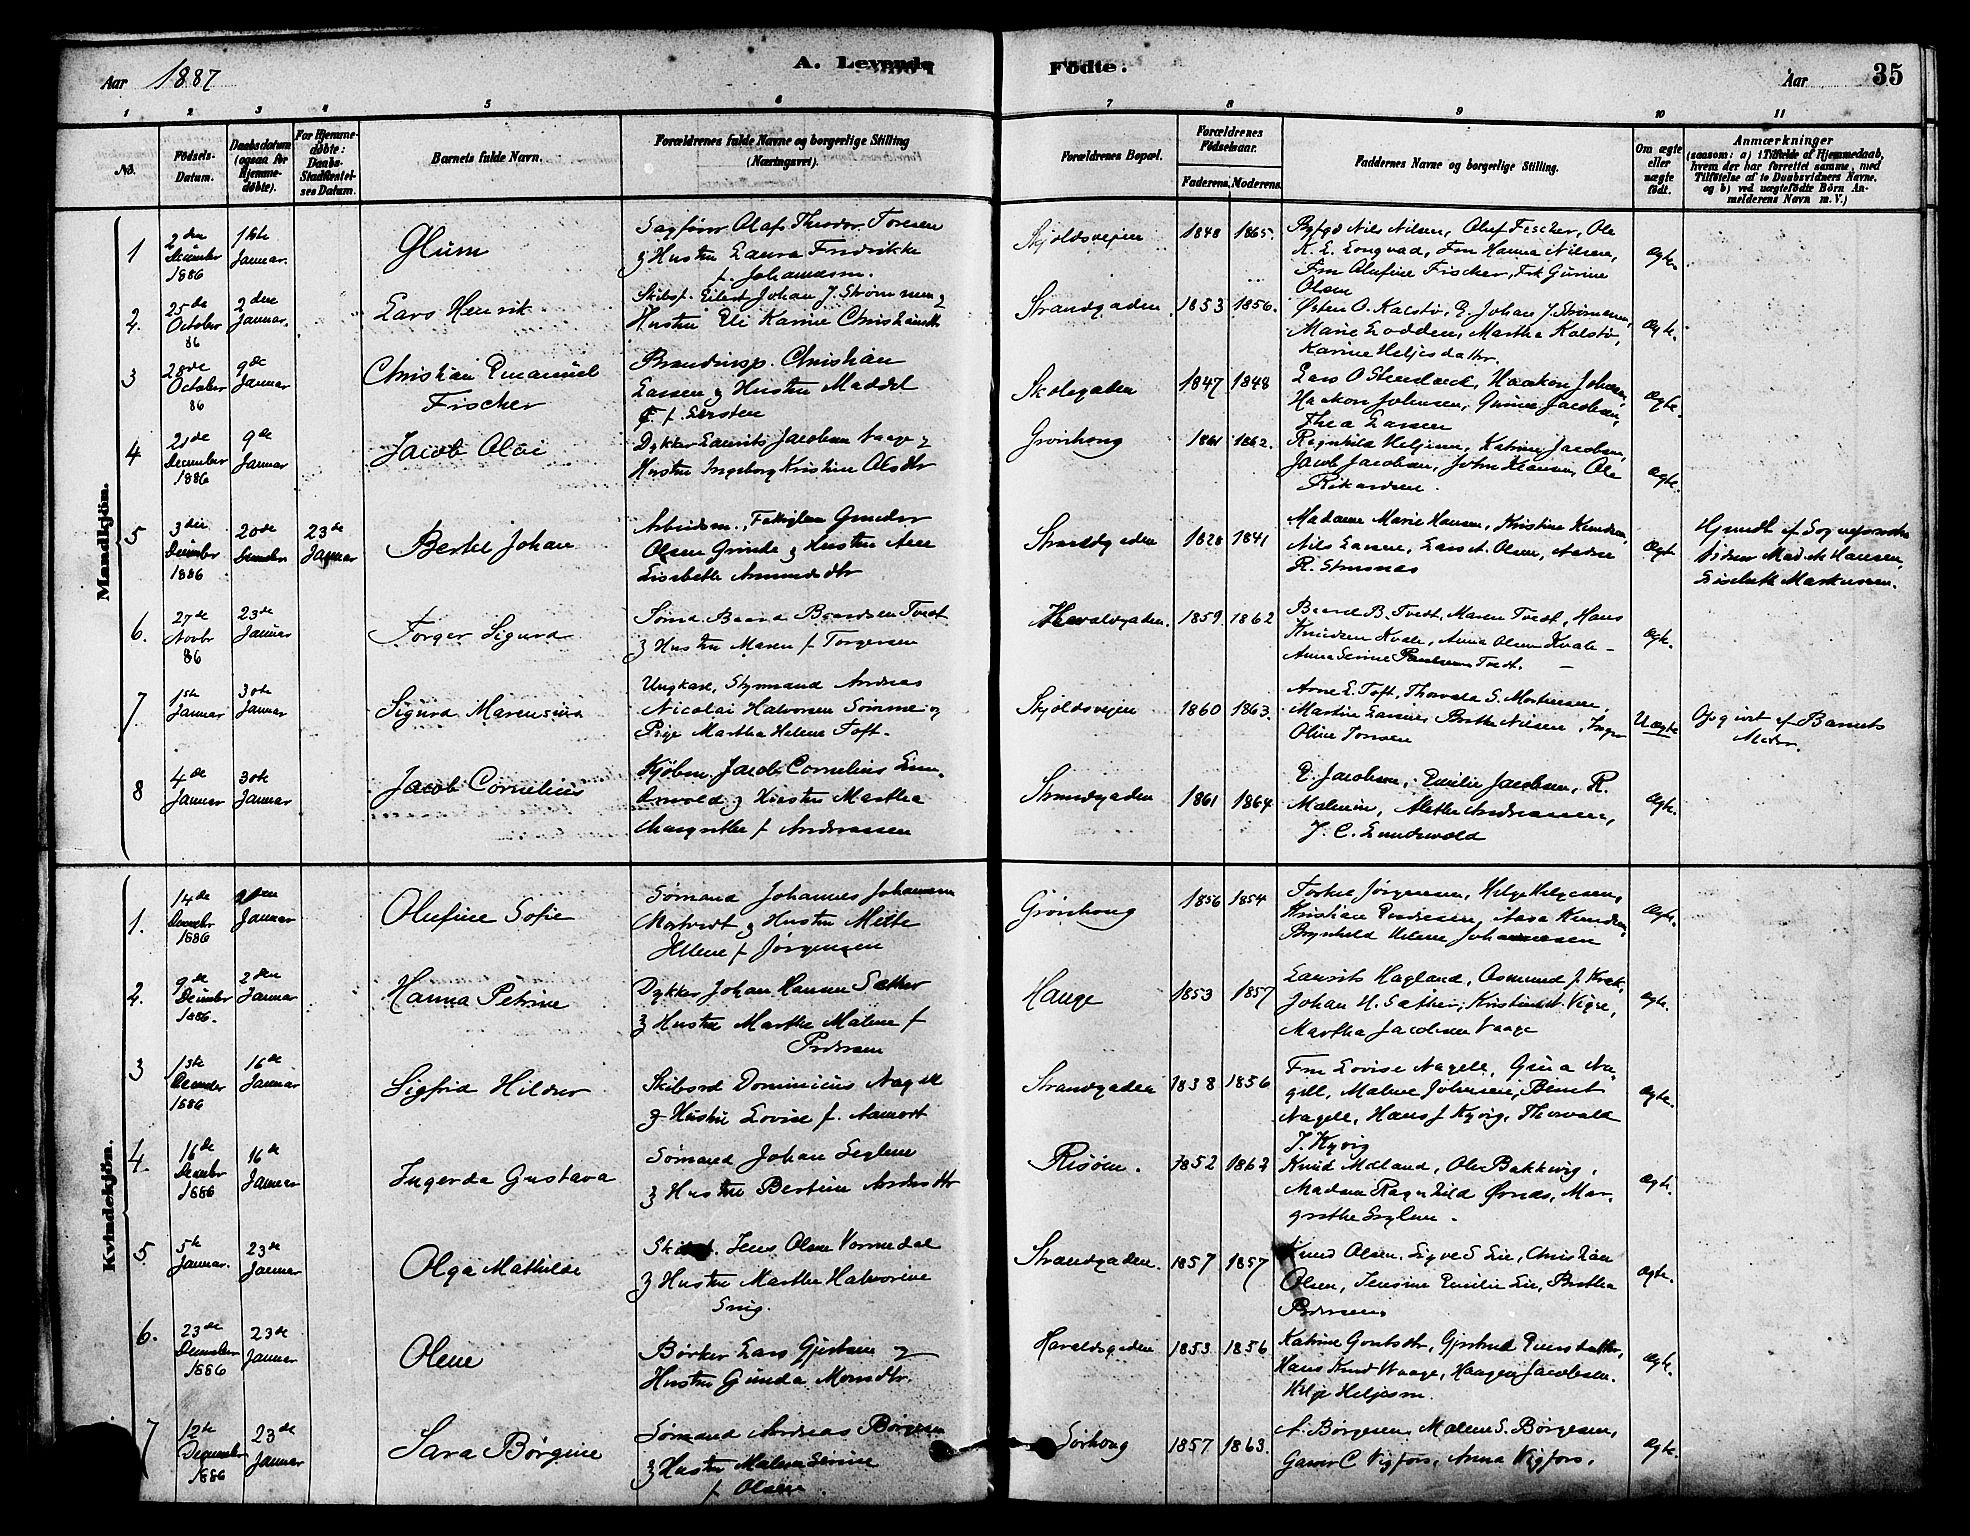 Aar 1887
A. Levende Födte.
Aar 35
1 2 3 4 5 6 7 8 9 10 11
No.
Födsels-Datum.
Daabsdatum (ogsaa for Hjemmedøbte).
For Hjemmedøbte: Daabs-Stadfæstelses Datum.
Barnets fulde Navn.
Forældrenes fulde Navne og borgerlige Stilling (Næringsvei).
Forældrenes Bopæl.
Forældrenes Födselsaar.
Faderens. Moderens.
Faddernes Navne og borgerlige Stilling.
Om ægte eller uægte födt.
Anmærkninger
(saasom: a) i Tilfælde af Hjemmedaab, hvem der har forrettet samme, med Tilföielse af to Daabsvidners Navne, og b) ved uægtefödte Börn Anmelderens Navn m. V.)
Mandkjön.
1
2den December 1886
1ste Januar.
Glüm
Sagfører Olaf Theodor
& Hustru Laura Fredrikke
f. Johannesen.
Skjoldsvejen
1848 1865.
Nils Nilsen, Oluf Fischer, Ole
Fru Hanna Nilsen,
Fru Olufine Fischer, Frk Gurine
Olsen
Ægte.
2.
25de October 86
2den Januar.
Lars Henrik
Skibsf. Eilert Johan J. Strømmen &
Hustru Eli Karine
Strandgaden
1853 1856.
Østen O. Kalstø, E. Johan J. Strømmen,
Marie Lodden, Martha Kalstø,
Karine Heljesdatter.
Ægte.
3
28de October 86
9de Januar
Christian Emanuel
Fischer
Brandinsp. Christian
Lassen & Hustru
Skolegaden
1847 1848
Lars O Haakon Johnsen,
Haakon Johnsen, Gurine Jacobsen,
Thea Larsen
Ægte.
4
21de December 1886
9de Januar
Jacob Olai
Dykker Laurits Jacobsen Vaage &
Hustru Ingeborg Kristine Olsdtr
Grønhoug
1861 1862.
Ragnhild Heljesen, Katrine Jacobsen,
Jacob Jacobsen, John Hansen, Ole
Rikardsen.
Ægte.
5
3die December 1886
20de December
23de Januar
Bertel Johan
Arbeidsm., Gunder
Olsen Grinde & Hustru Ane
Lisebette Amundsdtr
Strandgaden
1828 1841
Madame Marie Hansen, Kristine Knudsen,
Nils Larsen, Lars A. Olsen, Andre
R. Strusnæs
Ægte
Hjmdt af
Mad. M Hansen,
Liselette Markusen.
6.
27de Novbr 86
23de Januar
Torger Sigurd
Sømd. Baard Baardsen Tvedt
& Hustru Maren f Torgersen
Haraldsgaden.
1859. 1862
Baard B. Tvedt, Maren Tvedt, Hans
Knudsen Kvale, Anna Olsen Kvale -
Anna Serine Paulsen Tvedt. -
Ægte.
7
1ste Januar
30te Januar
Sigurd Marensius
Ungkarl, Styrmand Andreas
Nicolai Halvorsen Somme og
Pige Martha Helene Toft.
Skjoldsvejen
1860 1863.
Arne E. Toft, Thorvald S. Mortensen,
Martin Larsen, Berthe Nilsen, Inger
Oline Tonsen
Uægte
Opgivet af Barnets
Moder.
8
4de Januar
30te Januar
Jacob Cornelius
Kjøbm. Jacob Cornelius Lun-
dewold & Hustru Martha
Margrethe f Andreassen
Strandgaden
1861 1864
E. Jacobsen, Emilie Jacobsen, R.
Malmin, Alethe Andreassen,
J. C. Lundewold
Ægte.
Kvindekjön.
1.
14de December 1886
2den Januar
Olufine Sofie
Sømand Johannes Johannesen
Mortvedt & Hustru Mette
Helene f Jørgensen
Grønhoug
1856 1854
Torkel Jørgensen, Helge Helgesen,
Kristian Aasa Knudsen,
Brynhild Helene Johannesen
Ægte.
2.
9de December 1886.
2den Januar
Hanna Petrine
Dykker Johan Hannes Sæther
& Hustru Marthe Malene f
Pedersen
Hauge
1853 1857
Laurits Hagland, Osmund J. Kvek,
Johan H. Sæther, Kristine H. Vigre,
Martha Jacobsen Vaage
Ægte.
3
13de December 1886
16de Januar
Sigfrid Hildur
Skibsrd Dominicus Nagell
& Hustru Lovise f. Aamodt
Strandgaden
1838 1856
Fru Lovise Nagell, Gina Na-
gell, Malene Johnsen, Bernt
Nagell, Hans J Kyvig, Thorvald
J. Kyvig
Ægte.
4.
16de December 1886
16de Januar
Ingerda Gustava
Sømand Johan Leglene
& Hustru Bertine Andersdtr
Risøen.
1852 1862
Knud Mæland, Ole Bakkevig,
Madam Ragnhild Ørnes, Mar-
grethe
Ægte.
5
5te Januar.
23de Januar
Olga Mathilde
Skibsf. Jens Olsen Vormedal
& Hustru Marthe Halvorine
Snig.
Strandgaden.
1857 1857
Knud Olsen, Sigve S Lie, Christian
Olsen, Jensine Emilie Lie, Berthe
Pedersen.
Ægte.
6.
23de December 1886
23de Januar
Olene
Bødker Lars Gjertsen &
Hustru Gunda Monsdtr.
Haraldsgaden
1853 1856
Katrine Gjertrud
Hans Knud Waage, Haagen Jacobsen.
Helje Heljesen.
Ægte.
7
12te December 1886
23de Januar
Sara Børgine
Sømand Andreas Børgesen
& Hustru Malene Serine
f Olsen.
Sørhoug
1857 1863.
A. Børgesen, Malene S. Børgesen,
C Vigfors, Anna Vigfors.
Ægte.